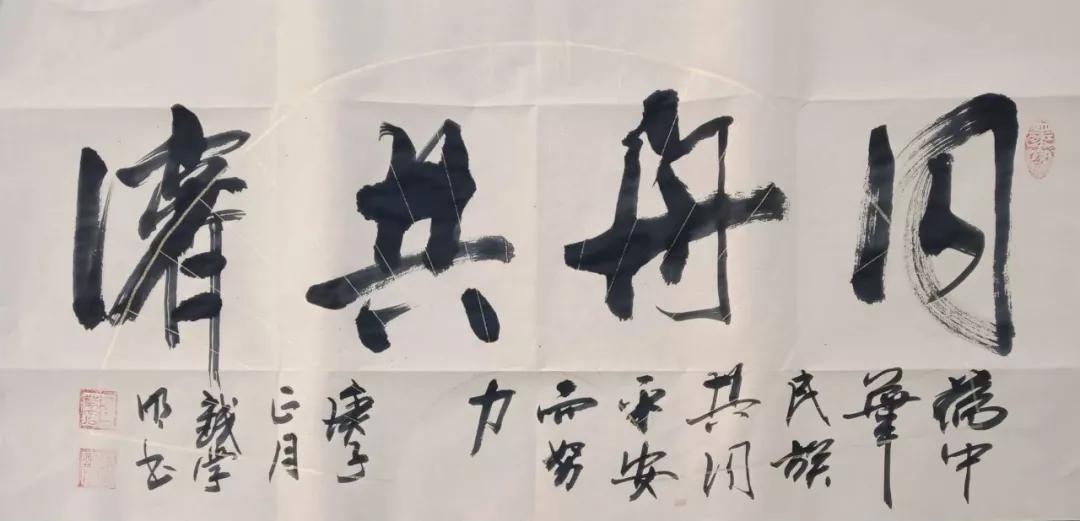 同舟共濟
為中
華
民族
共同
平安
而努
力
庚子
正月
錢学
明书